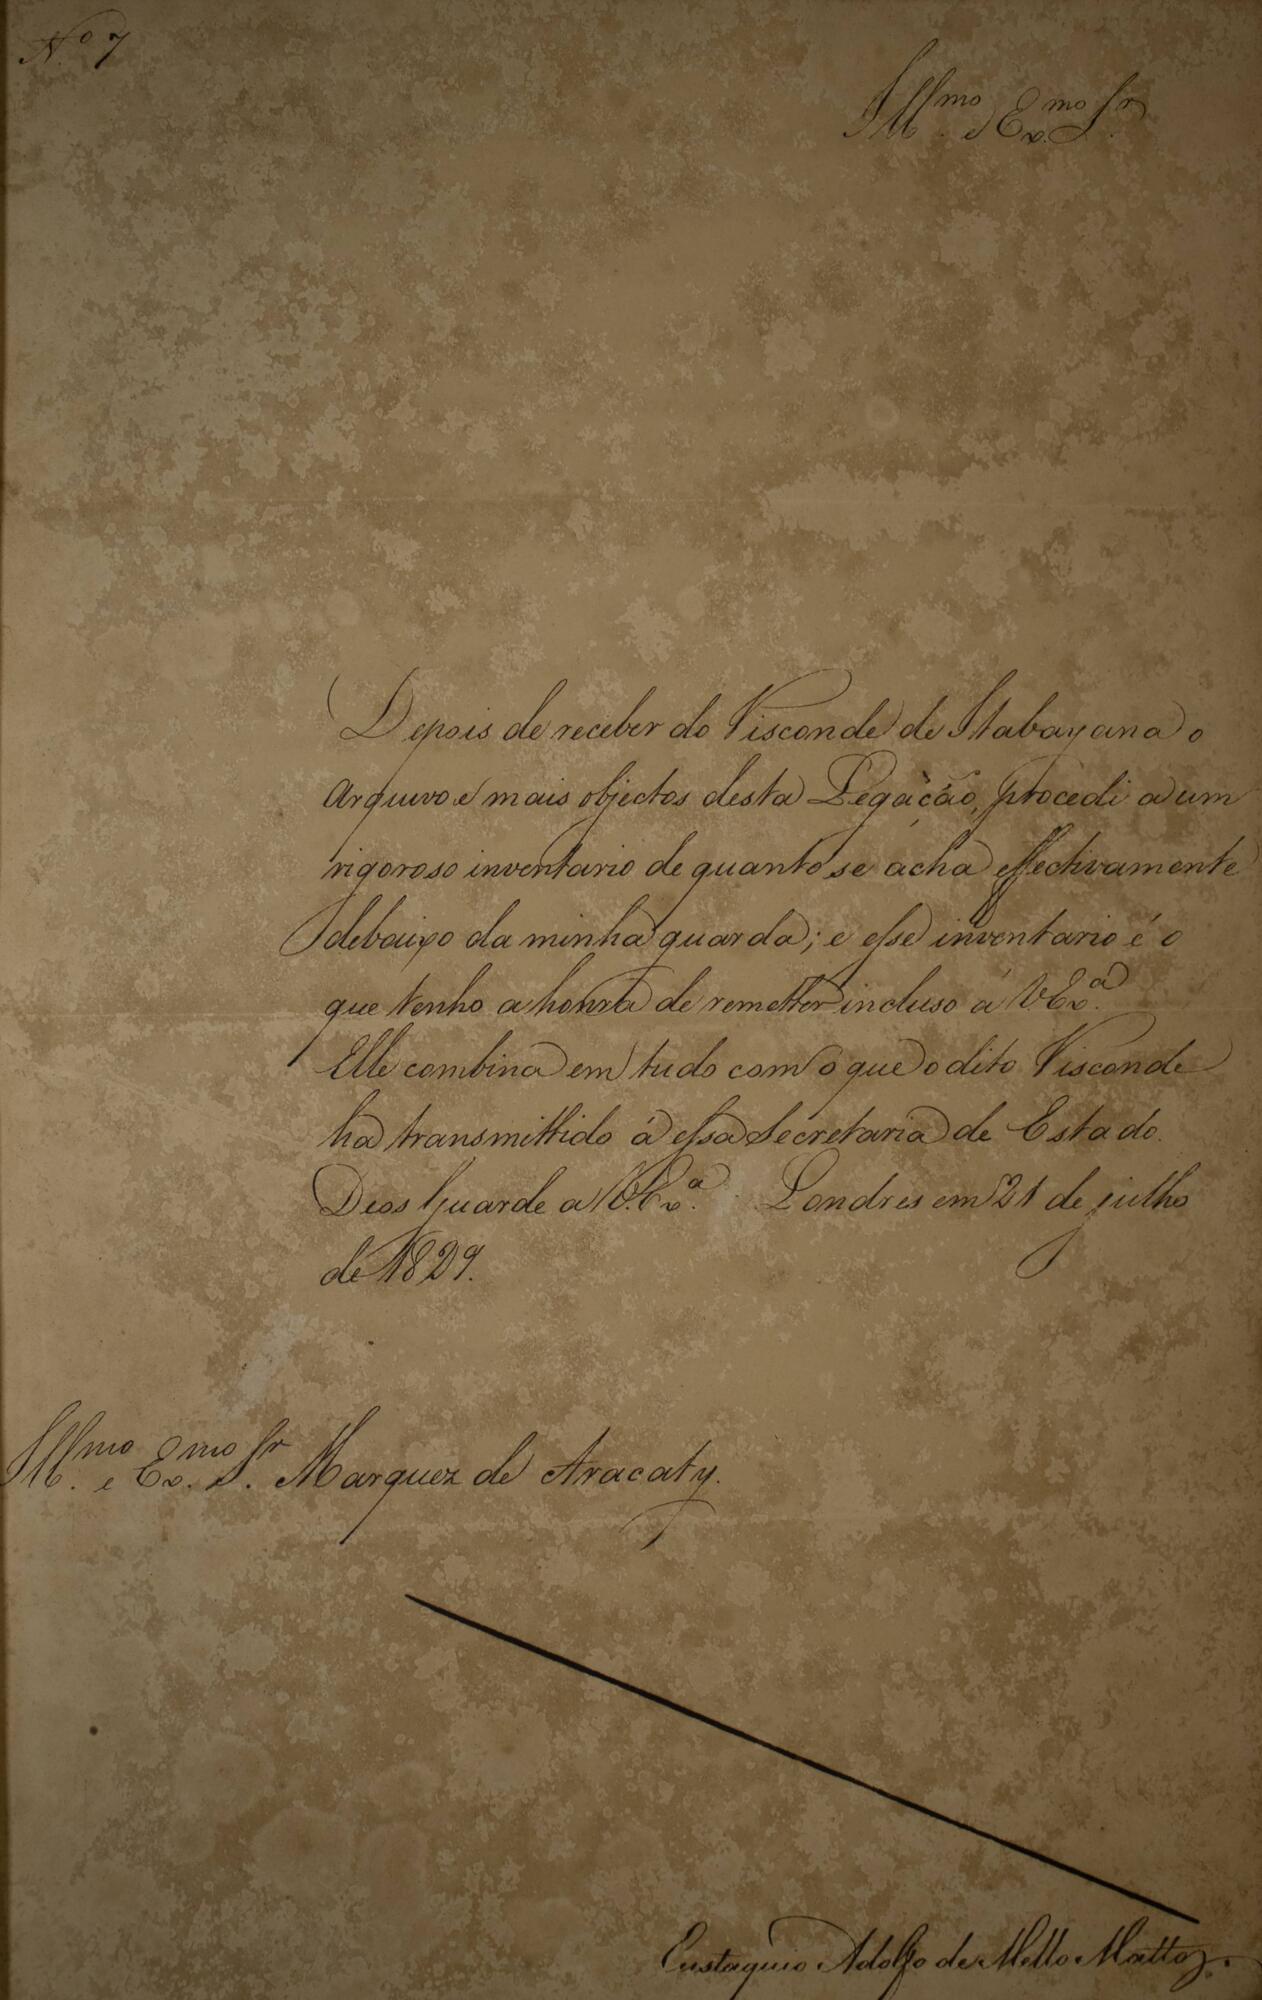 Nº 7
Illmo. e Exmo. Sr.
Depois de receber do Visconde de Itabayana o
Arquivo e mais objectos desta Legação, procedi a um
rigoroso inventario de quanto se acha effectivamente
debaixo da minha guarda; e esse inventario é o
que tenho a honra de remetter incluso á V. Exª.
Elle combina em tudo com o que o dito Visconde
ha transmittido á essa Secretaria de Estado.
Deos Guarde a V. Exª. Londres em 21 de julho
de 1829.
Illmo. e Exmo. Sr. Marquez de Aracaty.
Eustaquio Adolfo de Mello Mattos.